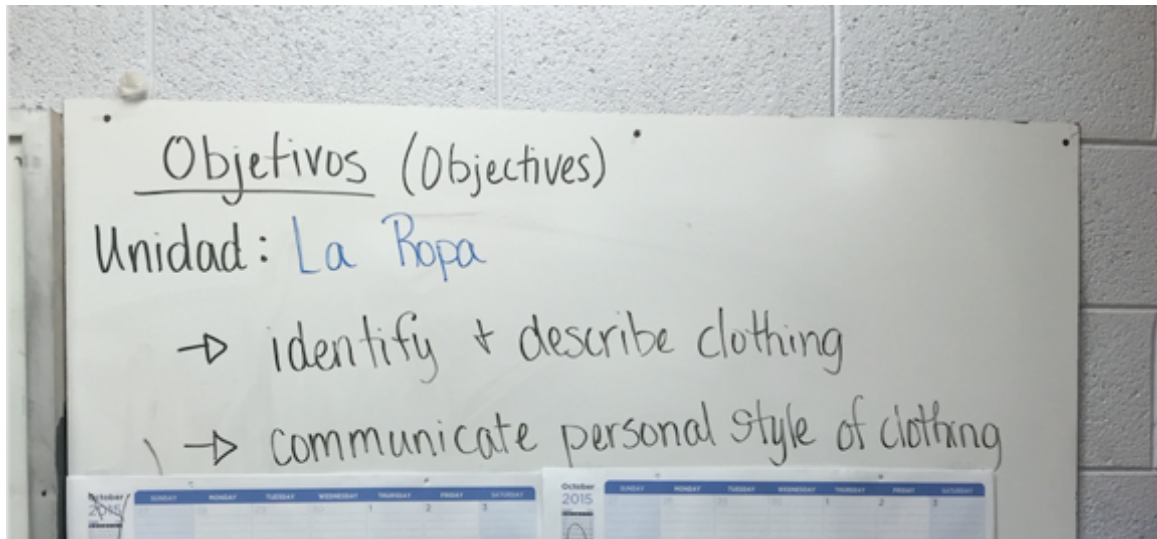 Objetivos (Objectives)
Unidad: La Ropa
→ identify + describe clothing
→ communicate personal style of clothing
October
2015
SUNDAY MONDAY TUESDAY WEDNESDAY THURSDAY FRIDAY SATURDAY
29 30 1 2 3
October
2015
SUNDAY MONDAY TUESDAY WEDNESDAY THURSDAY FRIDAY SATURDAY
1 2 3